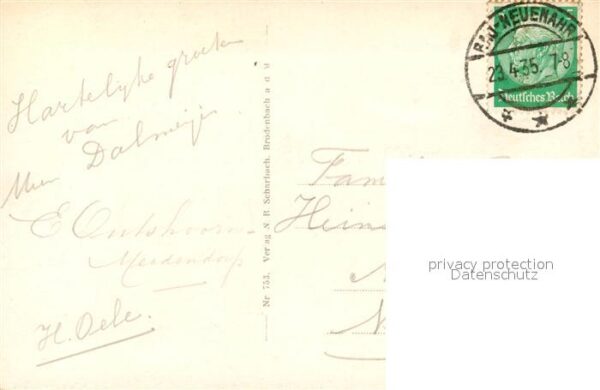 Hartelijke groeten
van
Dalmeijer
E Outshoorn
H. Oele.
Nr 753. Verlag N. R. Scharbach, Brodenbach a. d. M
BAD-NEUENAHR
23.4.35. 7-8
Deutsches Reich
Fam
Hein
privacy protection
Datenschutz